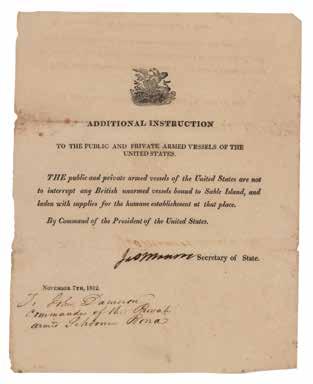 ADDITIONAL INSTRUCTION
TO THE PUBLIC AND PRIVATE ARMED VESSELS OF THE
UNITED STATES.
THE public and private armed vessels of the United States are not
to interrupt any British unarmed vessels bound to Sable Island, and
laden with supplies for the humane establishment at that place.
By Command of the President of the United States.
Jas Monroe Secretary of State.
NOVEMBER 7TH, 1812.
To John Dameron
Commander of the Privat
armed Schooner Bona